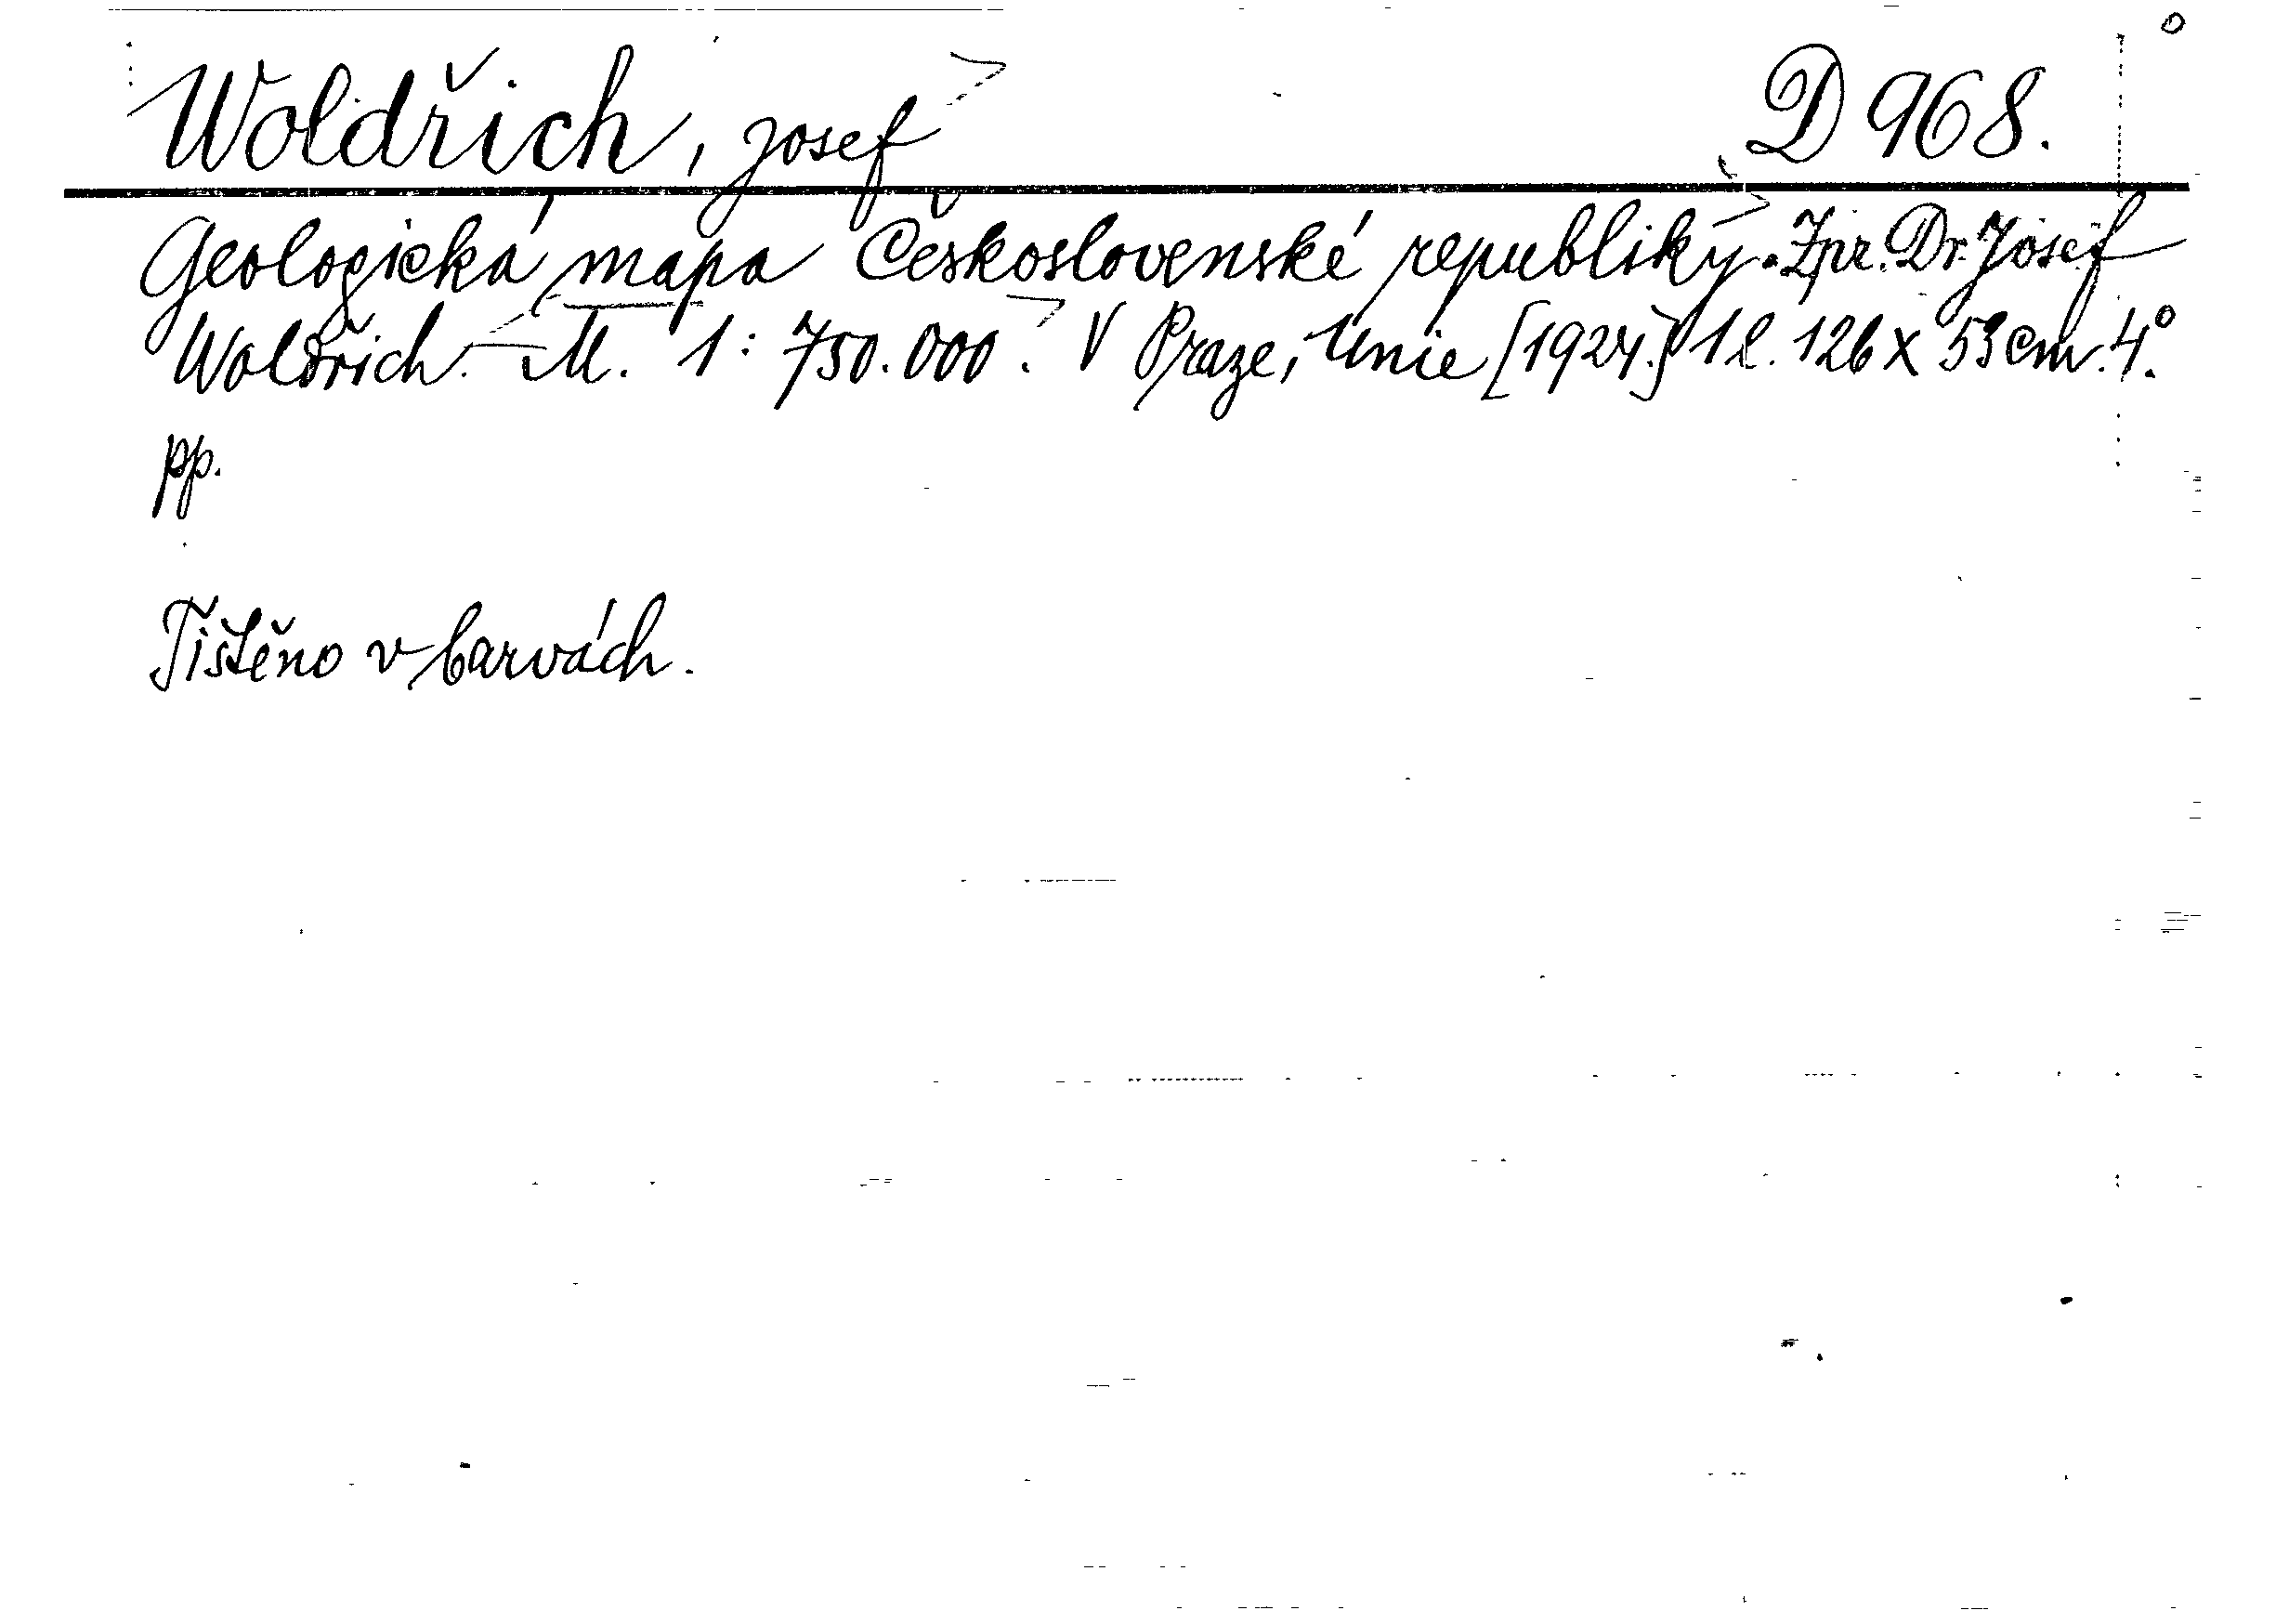 Woldřich, Josef D 968.
Geologická mapa Československé republiky. Zpr. Dr. Josef
Woldřich. M. 1:750.000. V Praze, Unie [1924.] 1 l. 126 x 53 cm. 4°.
pp.
Tištěno v barvách.